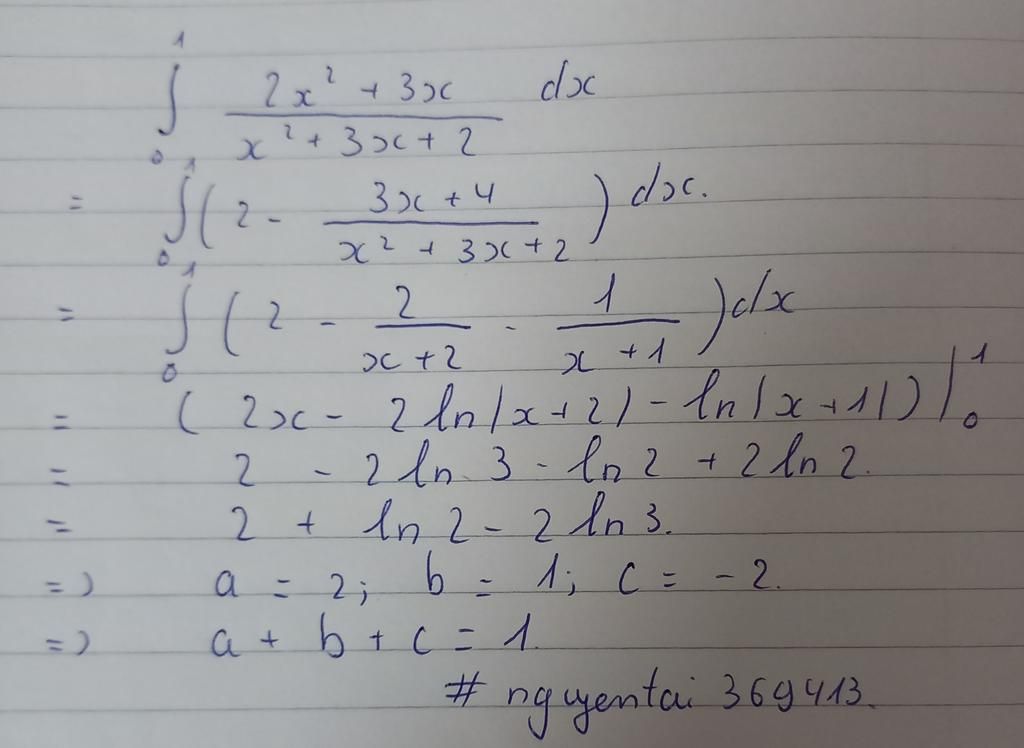 ∫₀¹ (2x² + 3x)/(x² + 3x + 2) dx
= ∫₀¹ (2 - (3x + 4)/(x² + 3x + 2)) dx.
= ∫₀¹ (2 - 2/(x + 2) - 1/(x + 1)) dx
= (2x - 2 ln|x + 2| - ln|x + 1|) |₀¹
= 2 - 2 ln 3 - ln 2 + 2 ln 2.
= 2 + ln 2 - 2 ln 3.
=> a = 2; b = 1; c = -2.
=> a + b + c = 1.
# nguyentai 369413.